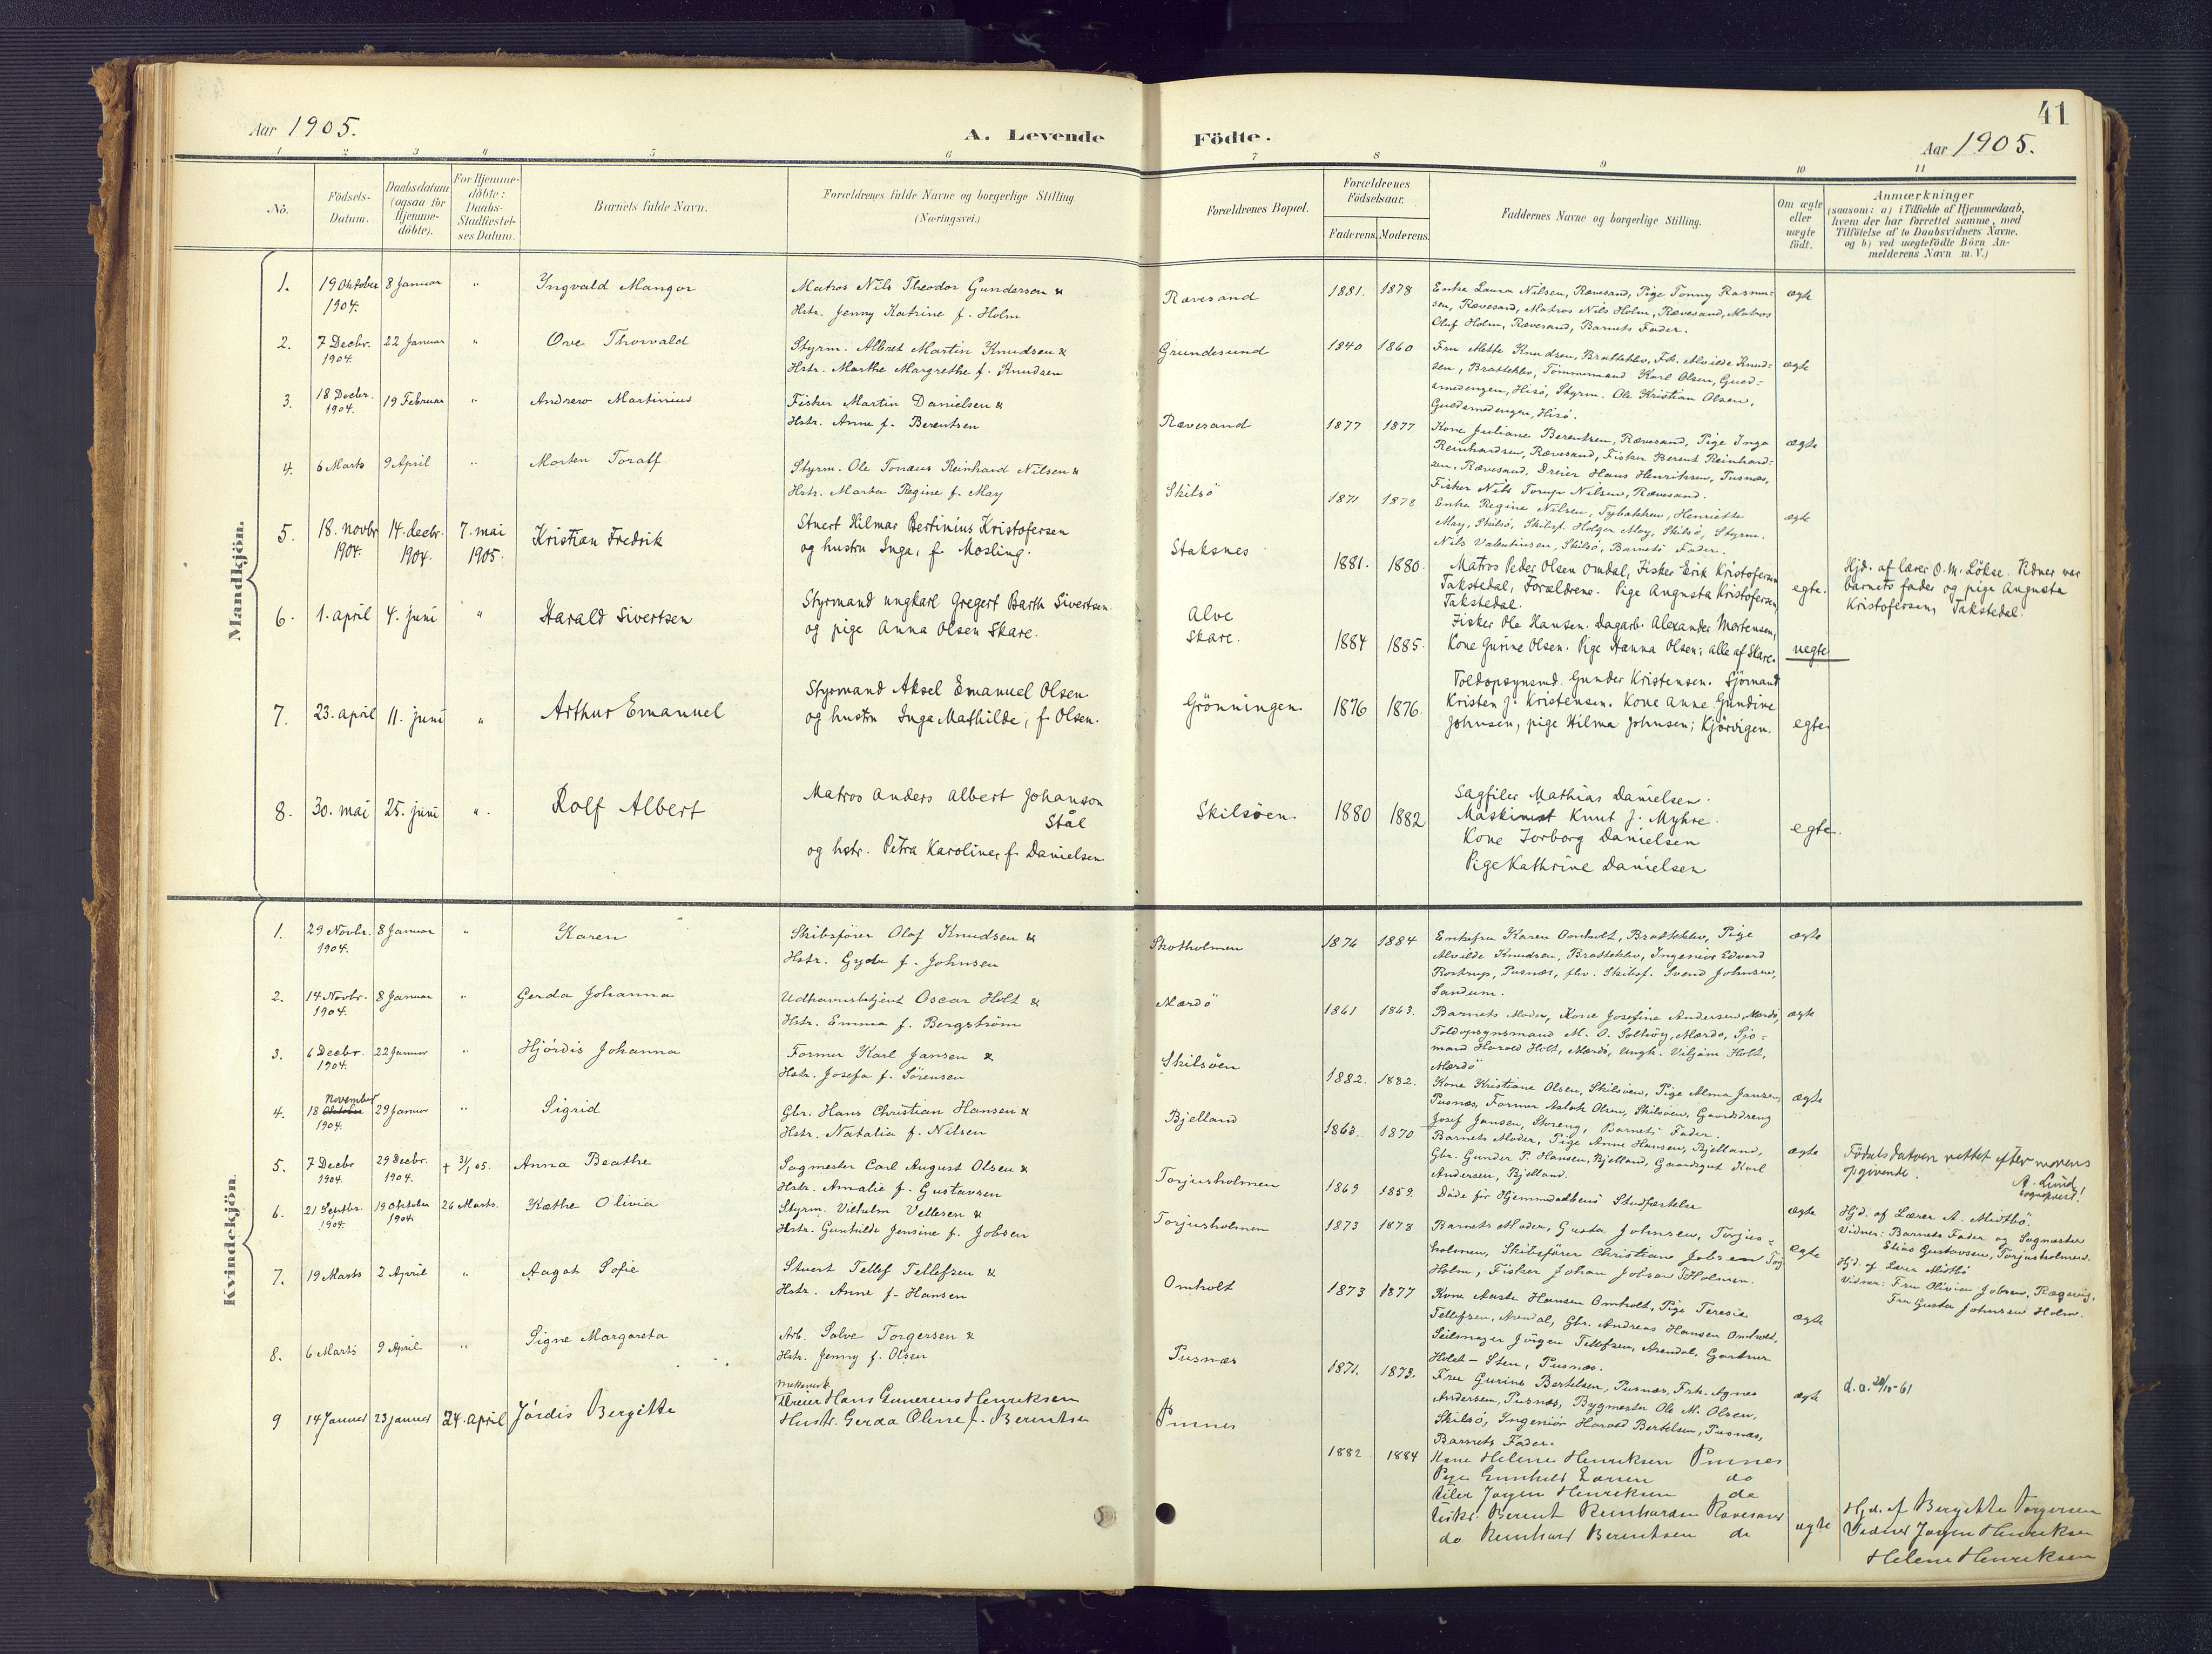 Aar 1905.
A. Levende
Födte.
Aar 1905.
41
1 2 3 4 5 6 7 8 9 10 11
No.
Födsels-
Datum.
Daabsdatum
(ogsaa for
Hjemme-
döbte).
For Hjemme-
döbte:
Daabs-
Stadfæstel-
ses Datum.
Barnets fulde Navn.
Forældrenes fulde Navne og borgerlige Stilling
(Næringsvei.)
Forældrenes Bopæl.
Forældrenes
Födselsaar.
Faderens. Moderens.
Faddernes Navne og borgerlige Stilling.
Om ægte
eller
uægte
födt.
Anmærkninger
(saasom: a) i Tilfælde af Hjemmedaab,
hvem der har forrettet samme, med
Tilföielse af to Daabsvidners Navne.
og b) ved uægtefödte Börn An-
melderens Navn m.V.)
Mandkjön.
1. 19 Oktober 1904. 8 Januar " Yngvald Mangor
Matros Nils Theodor Gundersen &
Hstr. Jenny Katrine f. Holm
Rævesand 1881. 1878
Enke Laura Nilsen, Rævesand, Pige Tonny Rasmus-
sen, Rævesand, Matros Nils Holm, Rævesand, Matros
Oluf Holm, Rævesand, Barnets Fader.
ægte
2. 7 Decbr. 1904. 22 Januar " Ove Thorvald
Styrm. Albert Martin Knudsen &
Hstr. Marthe Margrethe f. Knudsen
Grundesund 1840 1860
Fru Mette Knudsen, Bratteklev, Frk. Alvilde Knud-
sen, Bratteklev, Tömmermand Karl Olsen, Guld-
smedengen, Hisö, Styrm. Ole Kristian Olsen,
Guldsmedengen, Hisö.
ægte
3. 18 Decbr. 1904. 19 Februar " Andrew Martinius
Fisker Martin Danielsen &
Hstr. Anne f. Berentsen
Rævesand 1877 1877
Kone Juliane Berentsen, Rævesand, Pige Inga
Reinhardsen, Rævesand, Fisker Berent Reinhard-
sen, Rævesand, Dreier Hans Henriksen, Pusnæs,
Fisker Nils Torup Nilsen, Rævesand.
ægte
4. 6 Marts 9 April " Morten Toralf
Styrm. Ole Tonæus Reinhard Nilsen &
Hstr. Marta Regine f. May
Skilsö 1871 1878
Enke Regine Nilsen, Tybakken, Henriette
May, Skilsö, Skibsf. Holger May, Skilsö, Styrm.
Nils Valentinsen, Skilsö, Barnets Fader.
ægte
5. 18. novbr 1904. 14. decbr. 1904. 7. mai 1905. Kristian Fredrik
Stuert Hilmar Bertinius Kristofersen
og hustru Inga, f. Mosling.
Staksnes 1881. 1880.
Matros Peder Olsen Omdal, Fisker Erik Kristofersen
Takstedal, Forældrene. Pige Augusta Kristofersen,
Takstedal.
egte.
Hjd. af lærer O. M. Lökse. Vidner var
barnets fader og pige Augusta
Kristofersen, Takstedal.
6. 1. april 4. juni " Harald Sivertsen
Styrmand ungkarl Gregert Barth Sivertsen
og pige Anna Olsen Skare.
Alve
Skare. 1884 1885.
Fisker Ole Hansen. Dagarb. Alexander Mortensen,
Kone Gurine Olsen. Pige Hanna Olsen; alle af Skare.
uegte
7. 23. april 11. juni " Arthur Emanuel
Styrmand Aksel Emanuel Olsen
og hustru Inga Mathilde, f. Olsen.
Grönningen 1876 1876.
Toldopsynsmd. Gunder Kristensen. Sjömand
Kristen J. Kristensen. Kone Anne Gundine
Johnsen, pige Hilma Johnsen; Kjörvigen.
egte
8. 30. mai 25. juni " Rolf Albert
Matros Anders Albert Johanson
Stål
og hstr. Petra Karoline, f. Danielsen
Skilsöen. 1880 1882
Sagfiler Mathias Danielsen.
Maskinist Knut J. Myhre.
Kone Torborg Danielsen
Pige Kathrine Danielsen
egte.
Kvindekjön.
1. 29 Novbr. 1904. 8 Januar " Karen
Skibsförer Olaf Knudsen &
Hstr. Gyda f. Johnsen
Skotholmen 1876 1884
Enkefru Karen Omholt, Bratteklev, Pige
Alvilde Knudsen, Bratteklev, Ingeniör Edvard
Rostrup, Pusnæs, fhv. Skibsf. Svend Johnsen,
Sandum.
ægte
2. 14 Novbr. 1904. 8 Januar " Gerda Johanna
Udhavnsbetjent Oscar Holt &
Hstr. Emma f. Bergström
Mærdö 1861 1863.
Barnets Moder, Kone Josefine Andersen, Mærdö,
Toldopsynsmand M. O. Solbög, Mærdö, Sjö-
mand Harald Holt, Mærdö, Ungk. Viljam Holt,
Mærdö
ægte
3. 6 Decbr. 1904. 22 Januar " Hjördis Johanna
Former Karl Jansen &
Hstr. Josefa f. Sörensen
Skilsöen 1882. 1882.
Kone Kristiane Olsen, Skilsöen, Pige Alma Jansen,
Pusnæs, Former Aslak Olsen, Skilsöen, Gaardsdreng
Josef Jansen, Storeng, Barnets Fader.
ægte
4. November 18 Oktober 1904. 29 Januar " Sigrid
Gbr. Hans Christian Hansen &
Hstr. Natalia f. Nilsen
Bjelland 1863. 1870
Barnets Moder, Pige Anne Hansen, Bjelland,
Gbr. Gunder P. Hansen, Bjelland, Gaardsgut Karl
Andersen, Bjelland.
ægte
Födselsdatoen rettet efter morens
opgivende.
A. Lund
sogneprest.
5. 7 Decbr 1904. 29 Decbr. 1904. + 31/1 05. Anna Beathe
Sagmester Carl August Olsen &
Hstr. Amalie f. Gustavsen
Torjusholmen 1869 1859.
Döde för Hjemmedaabens Stadfæstelse
ægte
Hjd. af Lærer A. Midtbö.
Vidner: Barnets Fader og Sagmester
Elias Gustavsen, Torjusholmen.
6. 21 Septbr. 1904. 19 Oktober 1904. 26 Marts. Kathe Olivia
Styrm. Vilhelm Vellesen &
Hstr. Gunhilde Jensine f. Jobsen
Torjusholmen 1873 1878
Barnets Moder, Gusta Johnsen, Torjus-
holmen, Skibsförer Christian Jobsen Torj
Holm, Fisker Johan Jobsen T Holmen.
egte
Hjd. af Lærer Midtbö
Vidner: Fru Olivia Jobsen, Rægevig,
Fru Gusta Johnsen Holm.
7. 19 Marts 2 April " Aagot Sofie
Stuert Tellef Tellefsen &
Hstr. Anne f. Hansen
Omholt 1873 1877
Kone Aaste Hansen Omholt, Pige Teresie
Tellefsen, Arendal, Gbr. Andreas Hansen Omholt,
Seilmager Jörgen Tellefsen, Arendal, Gartner
Holst-Sten, Pusnæs.
ægte
8. 6 Marts 9 April " Signe Margareta
Arb. Salve Torgersen &
Hstr. Jenny f. Olsen
Pusnæs 1871. 1873.
Fru Gurine Bertelsen, Pusnæs, Frk. Agnes
Andersen, Pusnæs, Bygmester Ole M. Olsen,
Skilsö, Ingeniör Harald Bertelsen, Pusnæs,
Barnets Fader.
ægte
9 14 Januar 23 januar 24. april Jórdis Bergitte
Dreier Hans Gunerius Henriksen
Hustr. Gerda Oline f. Berentsen
Pusnes 1882 1884
Kone Helene Henriksen Pusnes
Pige Gunhild Larsen do
Jörgen Henriksen do
Fisker Berent Reinhardsen Rævesand
do Reinhard Berentsen do
ægte
Hjd. af Bergitte Torgersen
Vidner Jörgen Henriksen
Helene Henriksen